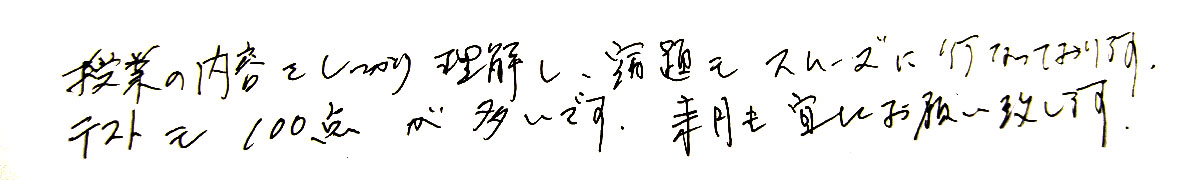 授業の内容をしっかり理解し、宿題もスムーズに行なっております。
テストも100点が多いです。来月も宜しくお願い致します。